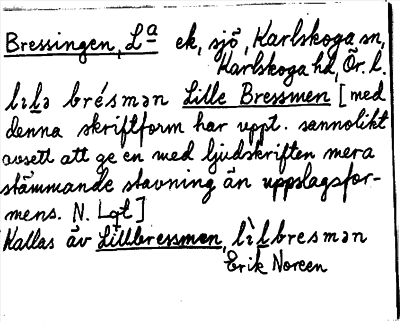 Bressingen, Lª ek, sjö, Karlskoga sn,
Karlskoga hd, Ör. l.
lɪl̲ə brésmən Lille Bressmen [med
denna skriftform har uppt. sannolikt
avsett att ge en med ljudskriften mera
stämmande stavning än uppslagsfor-
mens. N. Lgt]
Kallas äv Lillbressmen, lɪ̀l̲bresmən
Erik Noreen